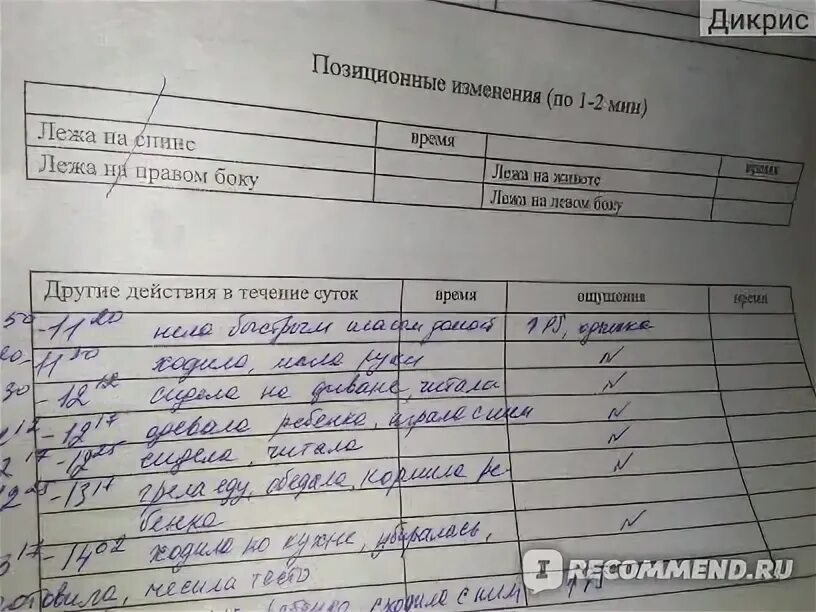 Дикрис
Позиционные изменения (по 1-2 мин)
время
Лежа на спине время
Лежа на животе
Лежа на правом боку
Лежа на левом боку
Другие действия в течение суток время ощущения время
50 - 11 20 шла быстрым шагом домой ↑PS, одышка
- 11 30 ходила, мыла руки N
30 - 12 12 сидела на диване, читала N
12 - 12 17 одевала ребенка, играла с ним N
17 - 12 25 сидела, читала N
25 - 13 17 грела еду, обедала, кормила ре- N
бенка
17 - 14 02 ходила по кухне, убиралась, N
готовила, месила тесто
ходила с ним
IRECOMMEND.RU